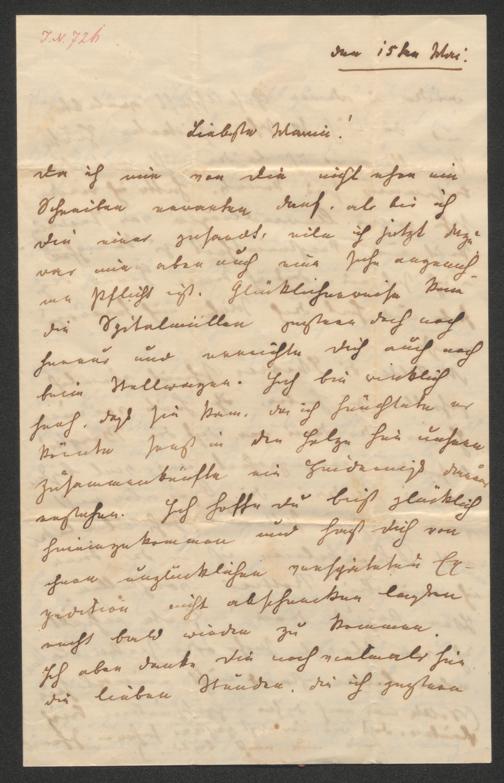 I.N. 726
den 15ten Mai.
Liebste Mamie!
Da ich nun von Dir nicht eher ein
Schreiben erwarten darf, als bis ich
Dir eines gesandt, eile ich jetzt dazu
was mir aber auch eine sehr angeneh-
me Pflicht ist. Glücklicherweise kam
die Spitalmüller gestern doch noch
heraus und erreichte Dich auch noch
beim Stellwagen. Ich bin wirklich
froh, daß sie kam, da ich fürchtete es
könnte sonst in der Folge für unsere
Zusammenkünfte ein Hinderniß daraus
entstehen. Ich hoffe du bist glücklich
hineingekommen und hast dich von
unglücklichen verspäteten Ex-
pedition nicht abschrecken lassen
recht bald wieder zu kommen.
Ich aber danke Dir noch vielmals für
die lieben Stunden, die ich gestern